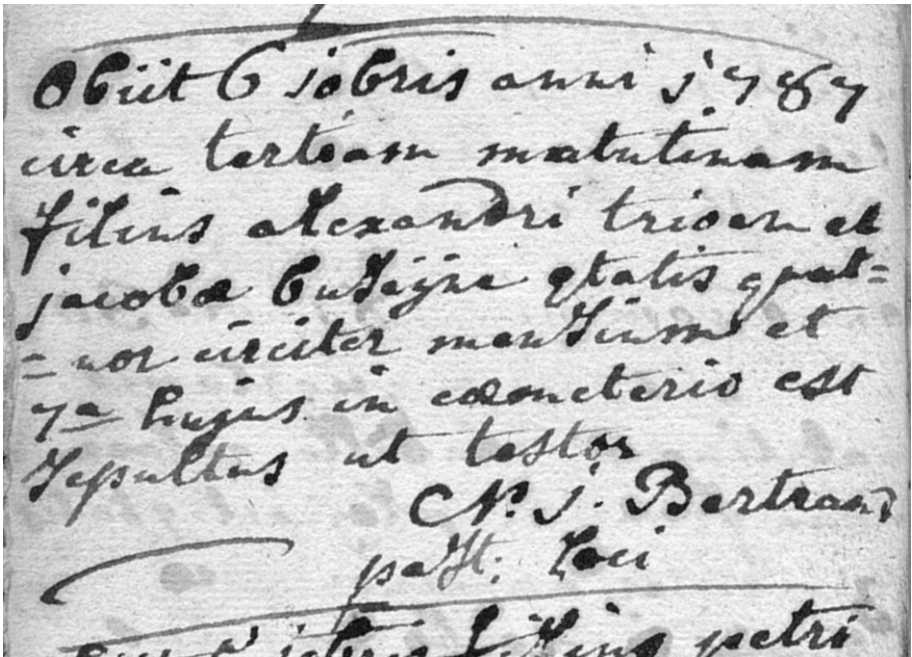 Obiit 6 jobris anni j787
circa tertiam matutinam
filius alexandri trioen et
jacobæ buseijne ætatis quat=
=uor circiter mensium et
7a hujus in cœmeterio est
sepultus ut testor
N. j. Bertrand
past. loci
jobris filius petri